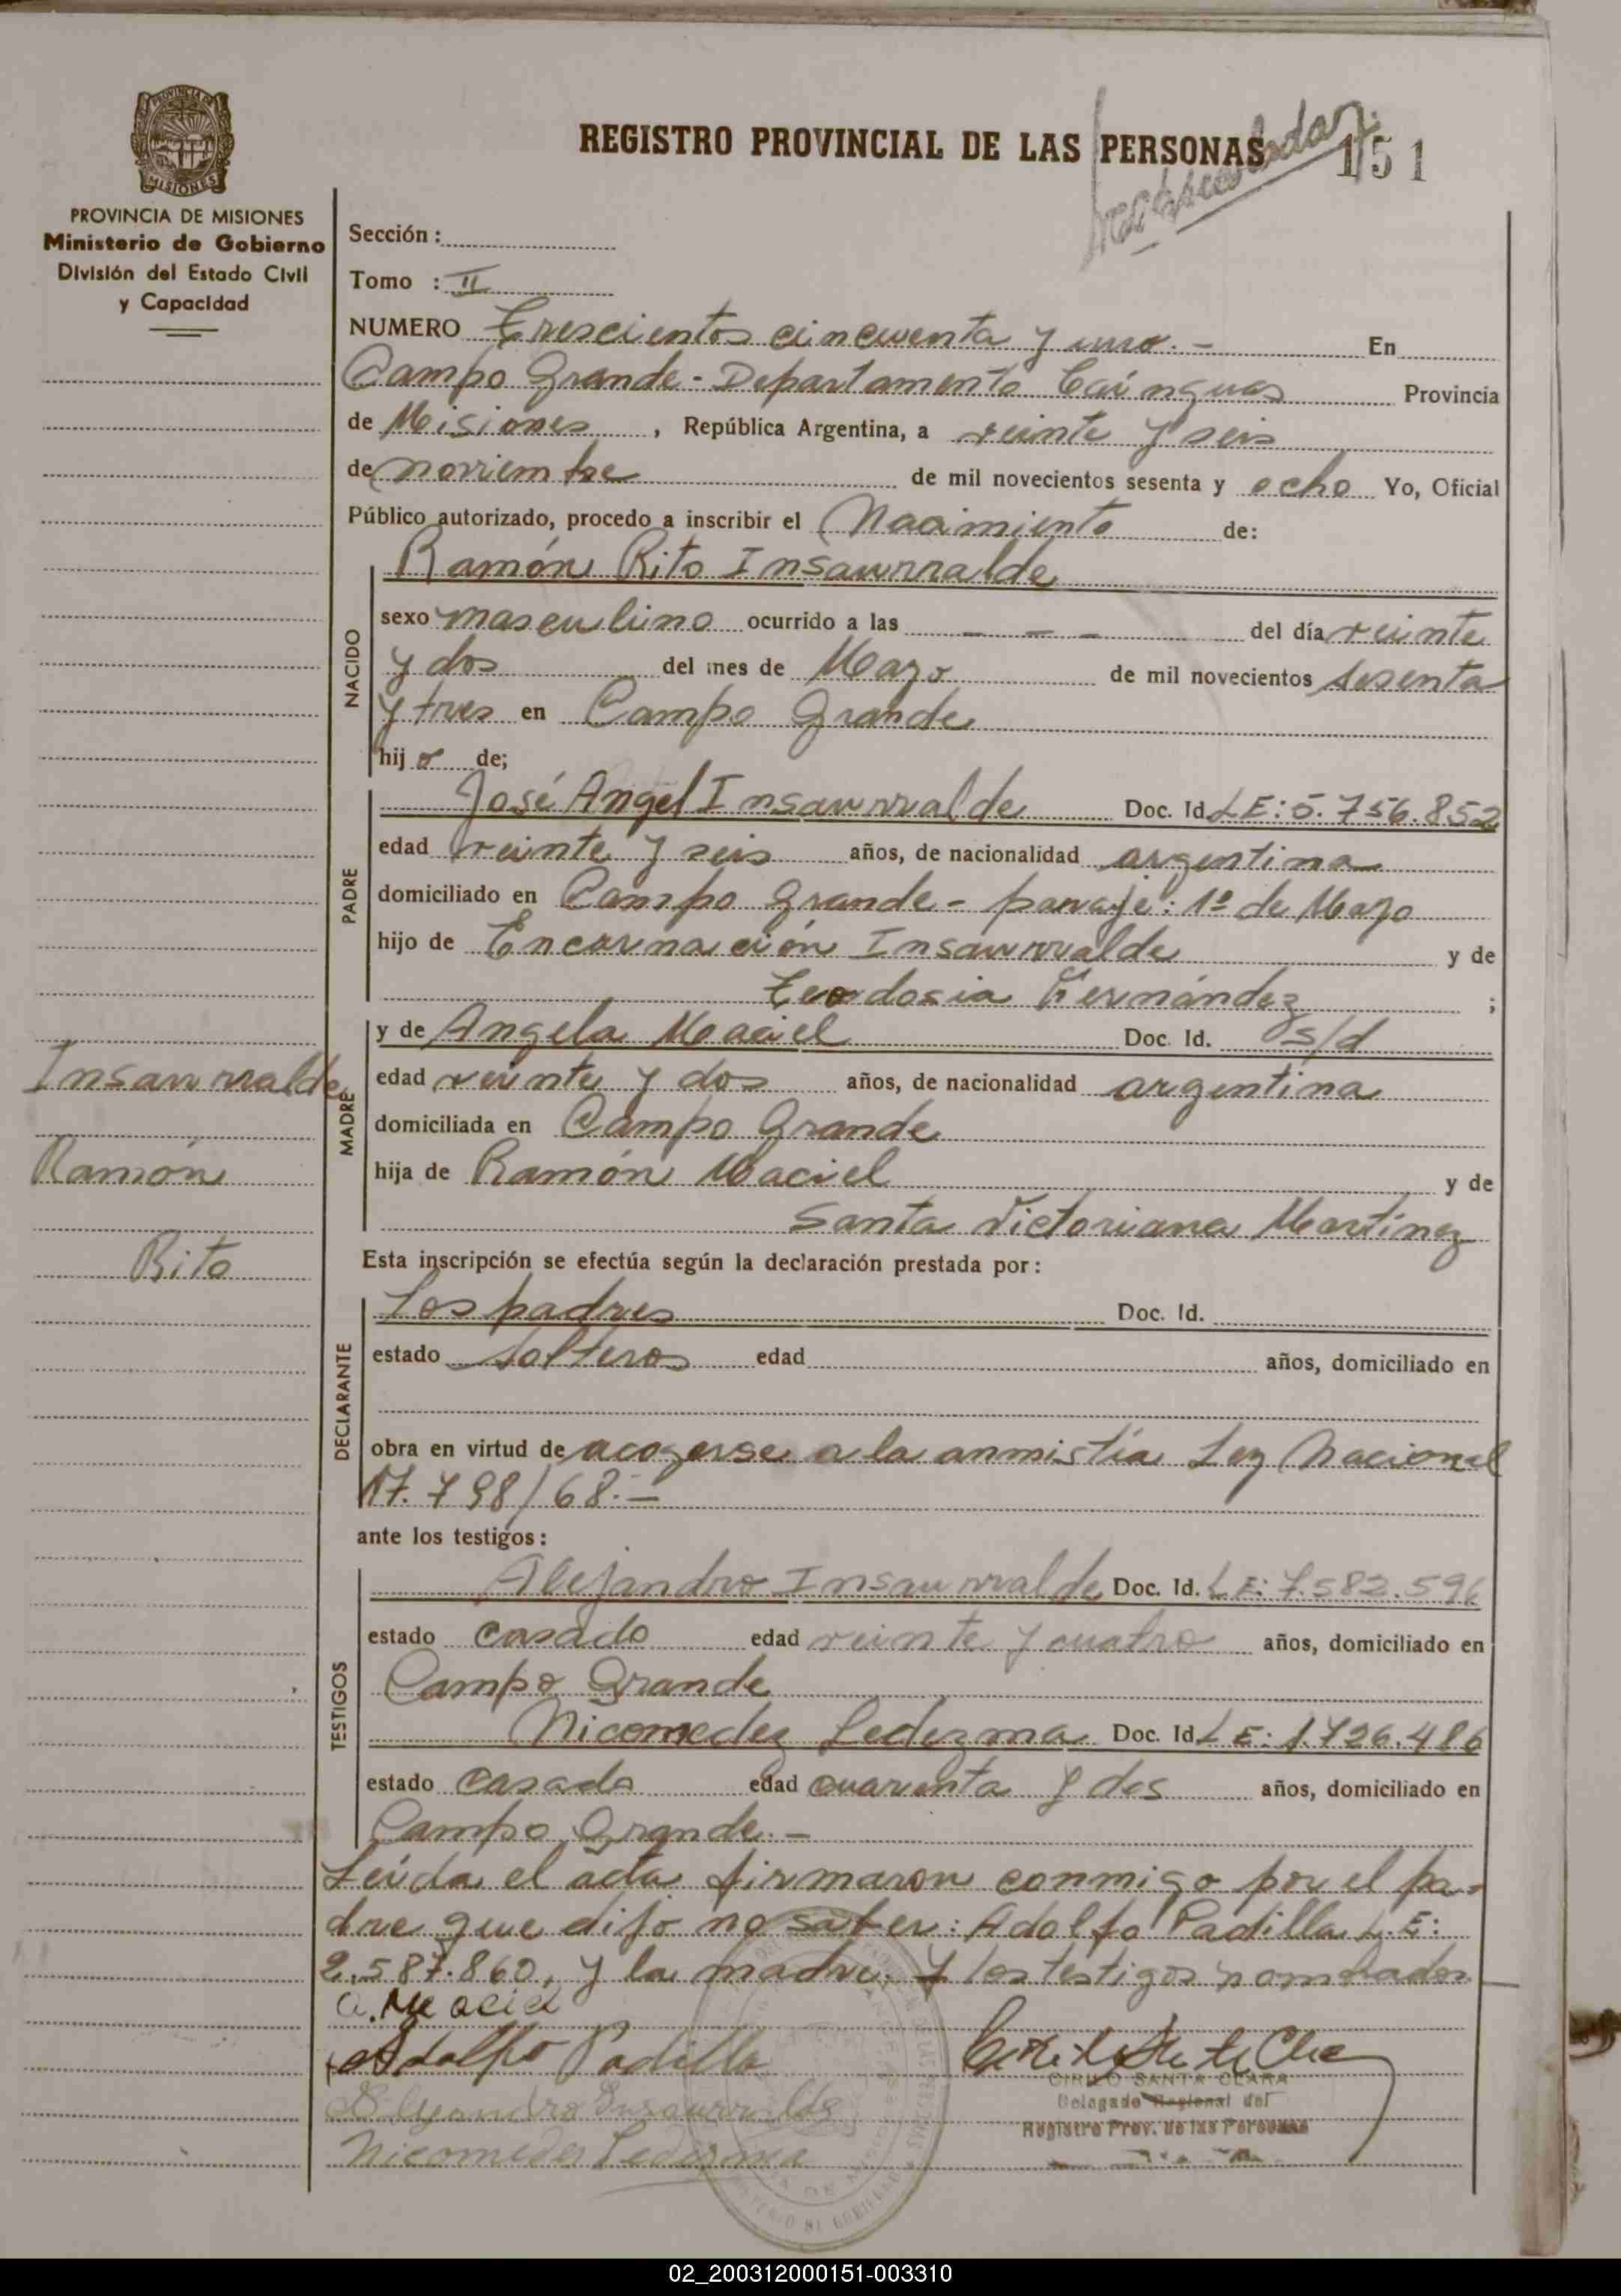 PROVINCIA DE MISIONES
MISIONES
PROVINCIA DE MISIONES
Ministerio de Gobierno
División del Estado Civil
y Capacidad
REGISTRO PROVINCIAL DE LAS PERSONAS 151
Sección :
Tomo : II
NUMERO Trescientos cincuenta y uno. – En
Campo Grande - Departamento Cainguas Provincia
de Misiones , República Argentina, a veinte y seis
de noviembre de mil novecientos sesenta y ocho Yo, Oficial
Público autorizado, procedo a inscribir el Nacimiento de:
NACIDO
Ramón Rito Insaurralde
sexo masculino ocurrido a las – – – del día veinte
y dos del mes de Mayo de mil novecientos sesenta
y tres en Campo Grande
hijo de;
PADRE
José Angel Insaurralde Doc. Id. LE: 5.756.852
edad veinte y seis años, de nacionalidad argentina
domiciliado en Campo Grande - paraje: 1º de Mayo
hijo de Encarnación Insaurralde y de
Teodosia Fernández ;
MADRE
y de Angela Maciel Doc. Id. s/d
edad veinte y dos años, de nacionalidad argentina
domiciliada en Campo Grande
hija de Ramón Maciel y de
Santa Victoriana Martínez
Insaurralde
Ramón
Rito
Esta inscripción se efectúa según la declaración prestada por :
DECLARANTE
Los padres Doc. Id.
estado solteros edad años, domiciliado en
obra en virtud de acogerse a la anmistía Ley Nacional
17.798/68. –
ante los testigos :
TESTIGOS
Alejandro Insaurralde Doc. Id. LE: 7.582.596
estado casado edad veinte y cuatro años, domiciliado en
Campo Grande
Nicomedez Ledezma Doc. Id. LE: 1.726.486
estado casado edad cuarenta y dos años, domiciliado en
Campo Grande. –
Leída el acta firmaron conmigo por el pa-
dre que dijo no saber: Adolfo Padilla L.E:
2.587.860, y la madre. Y los testigos nombrados
a. Maciel
Adolfo Padilla
Alejandro Insaurralde
Nicomedes Ledezma
CIRILO SANTA CLARA
Delegado Regional del
Registro Prov. de las Personas
02_200312000151-003310